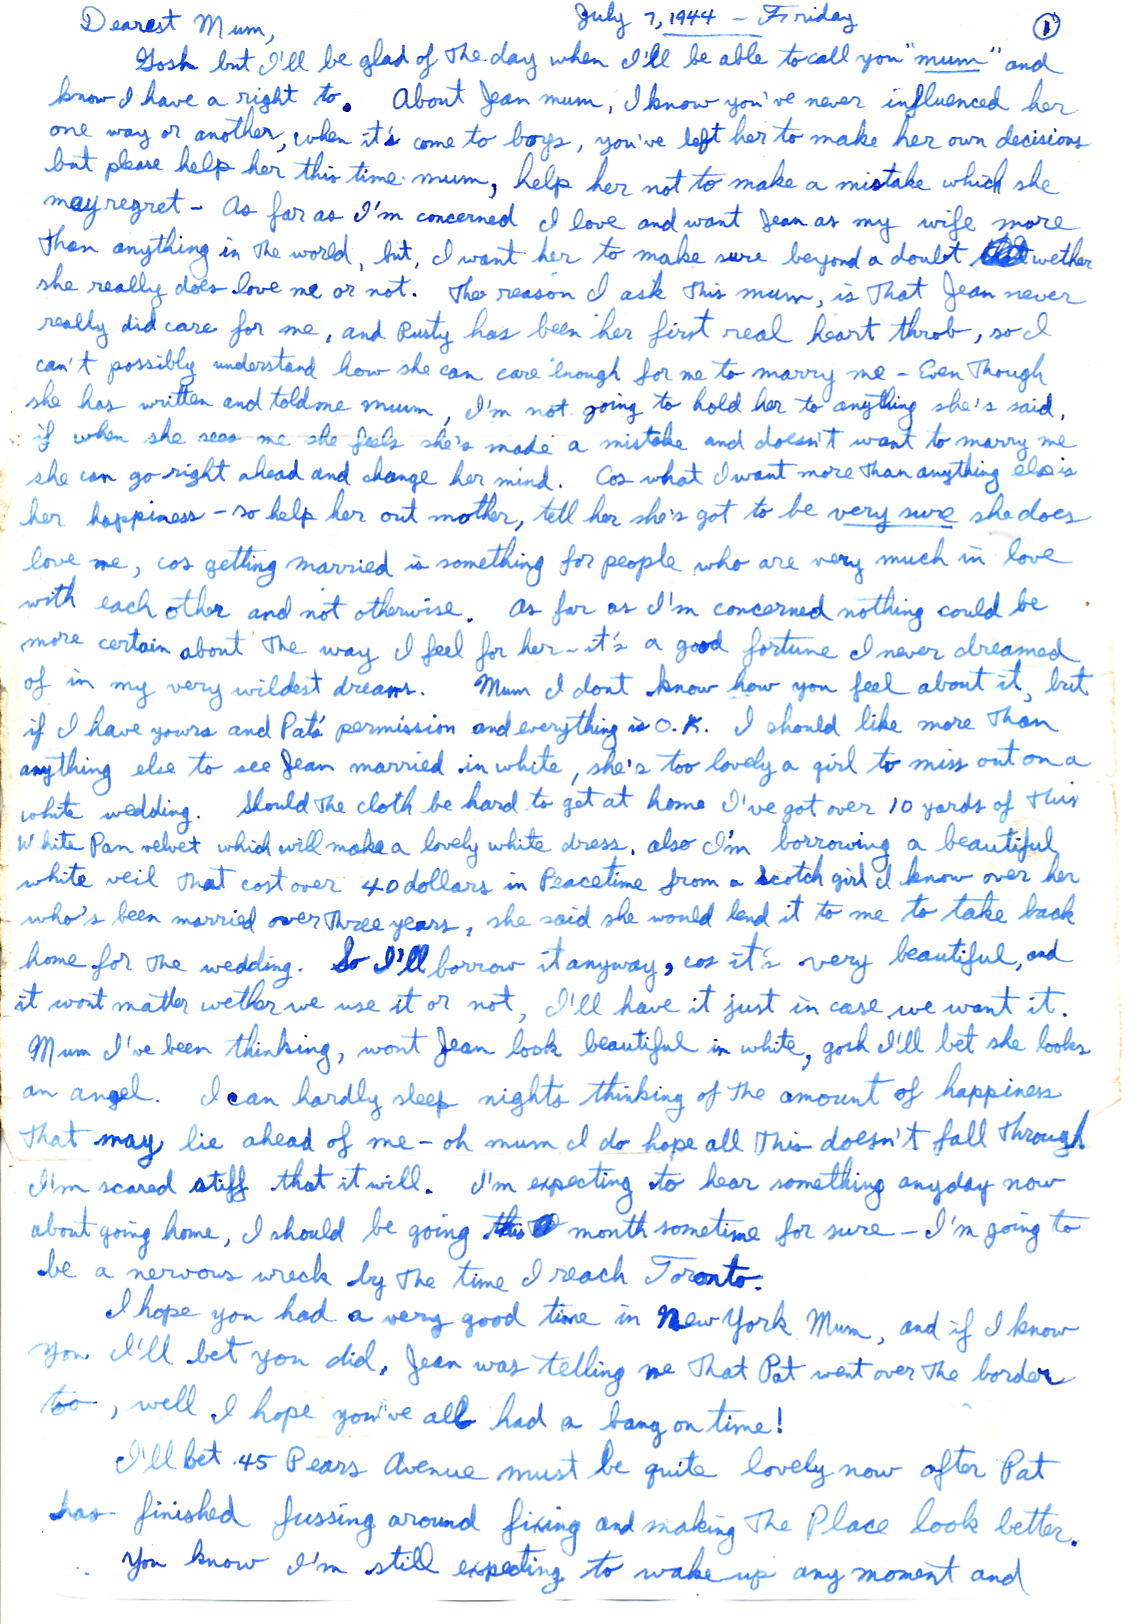 Dearest Mum, July 7, 1944 - Friday 1
Gosh but I'll be glad of the day when I'll be able to call you "mum" and
know I have a right to. About Jean mum, I know you've never influenced her
one way or another, when it's come to boys, you've left her to make her own decisions
but please help her this time mum, help her not to make a mistake which she
may regret - As far as I'm concerned I love and want Jean as my wife more
than anything in the world, but, I want her to make sure beyond a doubt wether
she really does love me or not. The reason I ask this mum, is that Jean never
really did care for me, and Rusty has been her first real heart throb, so I
can't possibly understand how she can care enough for me to marry me - Even though
she has written and told me mum, I'm not going to hold her to anything she's said,
if when she sees me she feels she's made a mistake and doesn't want to marry me
she can go right ahead and change her mind. Cos what I want more than anything else is
her happiness - so help her out mother, tell her she's got to be very sure she does
love me, cos getting married is something for people who are very much in love
with each other and not otherwise. As far as I'm concerned nothing could be
more certain about the way I feel for her - it's a good fortune I never dreamed
of in my very wildest dreams. Mum I dont know how you feel about it, but
if I have yours and Pat's permission and everything is O.K. I should like more than
anything else to see Jean married in white, she's too lovely a girl to miss out on a
white wedding. Should the cloth be hard to get at home I've got over 10 yards of this
White Pan velvet which will make a lovely white dress, also I'm borrowing a beautiful
white veil that cost over 40 dollars in Peacetime from a scotch girl I know over her
who's been married over three years, she said she would lend it to me to take back
home for the wedding. So I'll borrow it anyway, cos it's very beautiful, and
it wont matter wether we use it or not, I'll have it just in case we want it.
Mum I've been thinking, wont Jean look beautiful in white, gosh I'll bet she looks
an angel. I can hardly sleep nights thinking of the amount of happiness
that may lie ahead of me - oh mum I do hope all this doesn't fall through
I'm scared stiff that it will. I'm expecting to hear something anyday now
about going home, I should be going this month sometime for sure - I'm going to
be a nervous wreck by the time I reach Toronto.
I hope you had a very good time in New York Mum, and if I know
you I'll bet you did, Jean was telling me that Pat went over the border
too, well I hope you've all had a bang on time!
I'll bet 45 Pears Avenue must be quite lovely now after Pat
has finished fussing around fixing and making the Place look better.
You know I'm still expecting to wake up any moment and